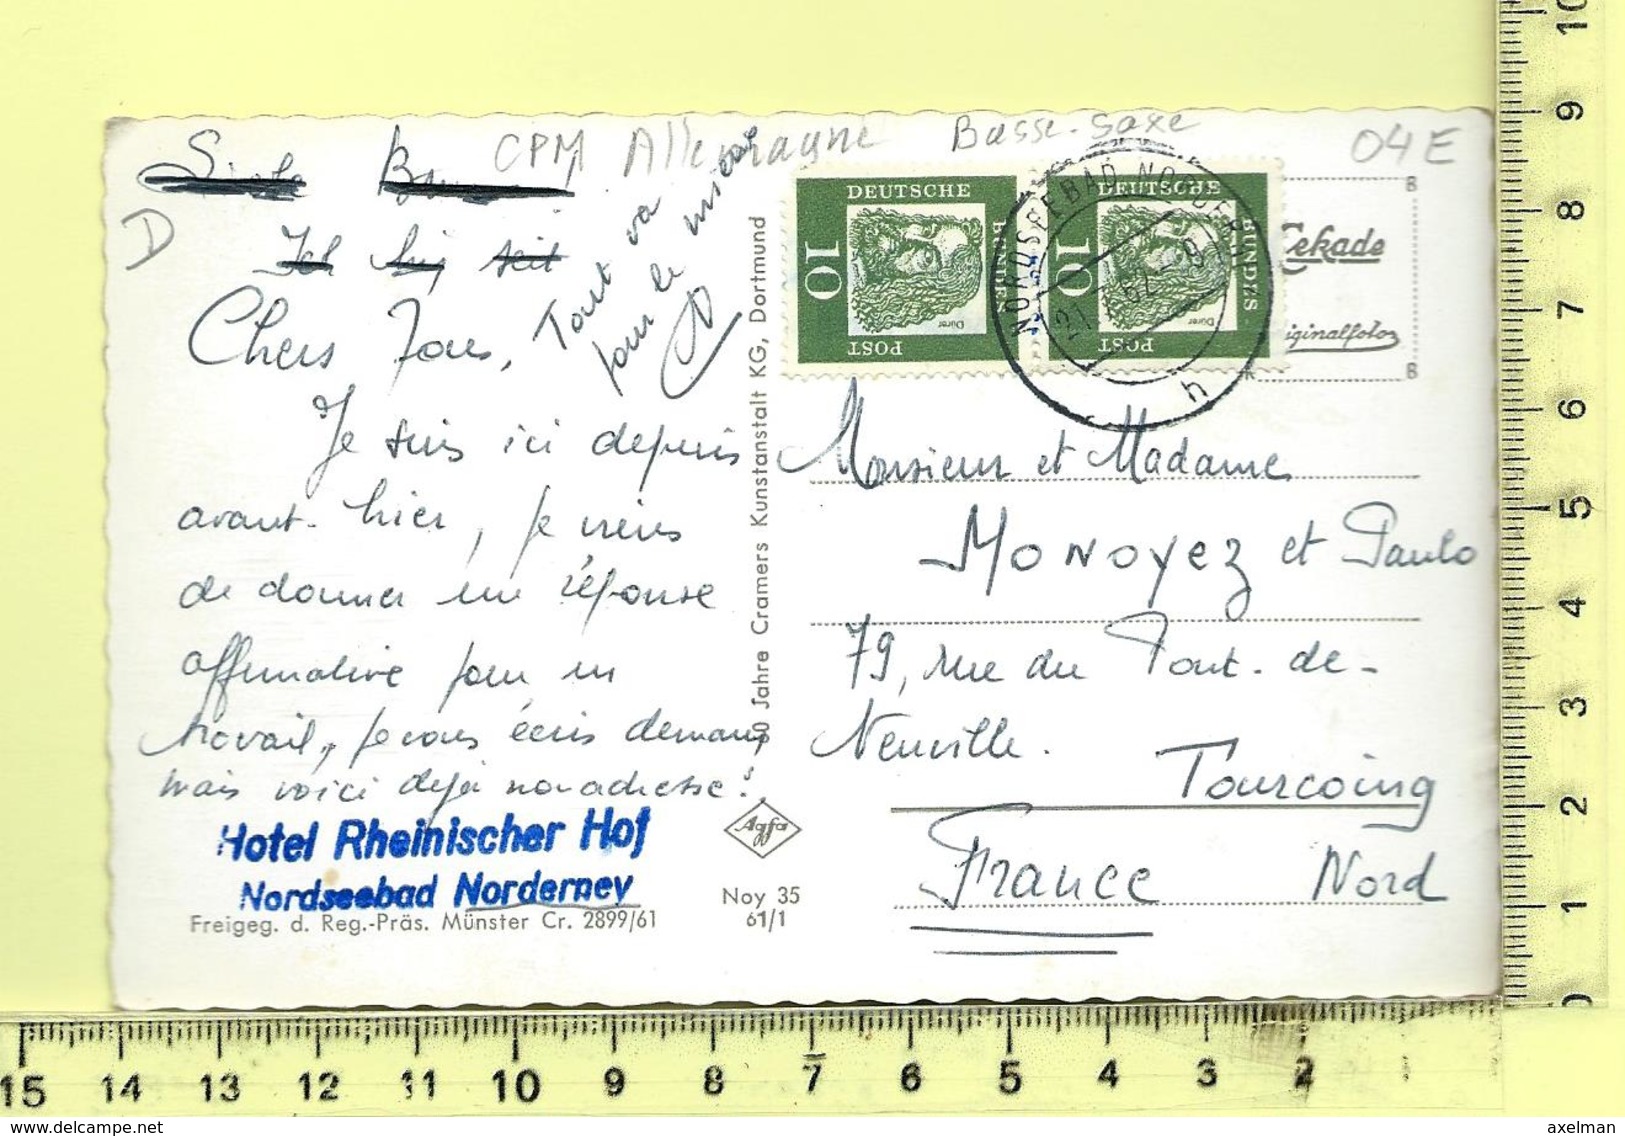 CPM Allemagne Basse-Saxe
04 E
D
Ich bin seit
Chers Tous,
Tout va
pour le mieux
Je suis ici depuis
avant-hier, je viens
de donner une réponse
affirmative pour un
travail, je vous écris demain
mais voici déjà mon adresse :
Hotel Rheinischer Hof
Nordseebad Norderney
Freigeg. d. Reg.-Präs. Münster Cr. 2899/61
Jahre Cramers Kunstanstalt KG, Dortmund
Agfa
Noy 35
61/1
DEUTSCHE
BUNDES
POST
10
Dürer
DEUTSCHE
BUNDES
POST
10
Dürer
NORDSEEBAD NORDERN
21 62 - 9
h
Cekade
iginalfoto
Monsieur et Madame
MONOYEZ et Paulo
79, rue du Pont-de-
Neuville.
Tourcoing
France Nord
10
9
8
7
6
5
4
3
2
1
15 14 13 12 11 10 9 8 7 6 5 4 3 2
delcampe.net
axelman